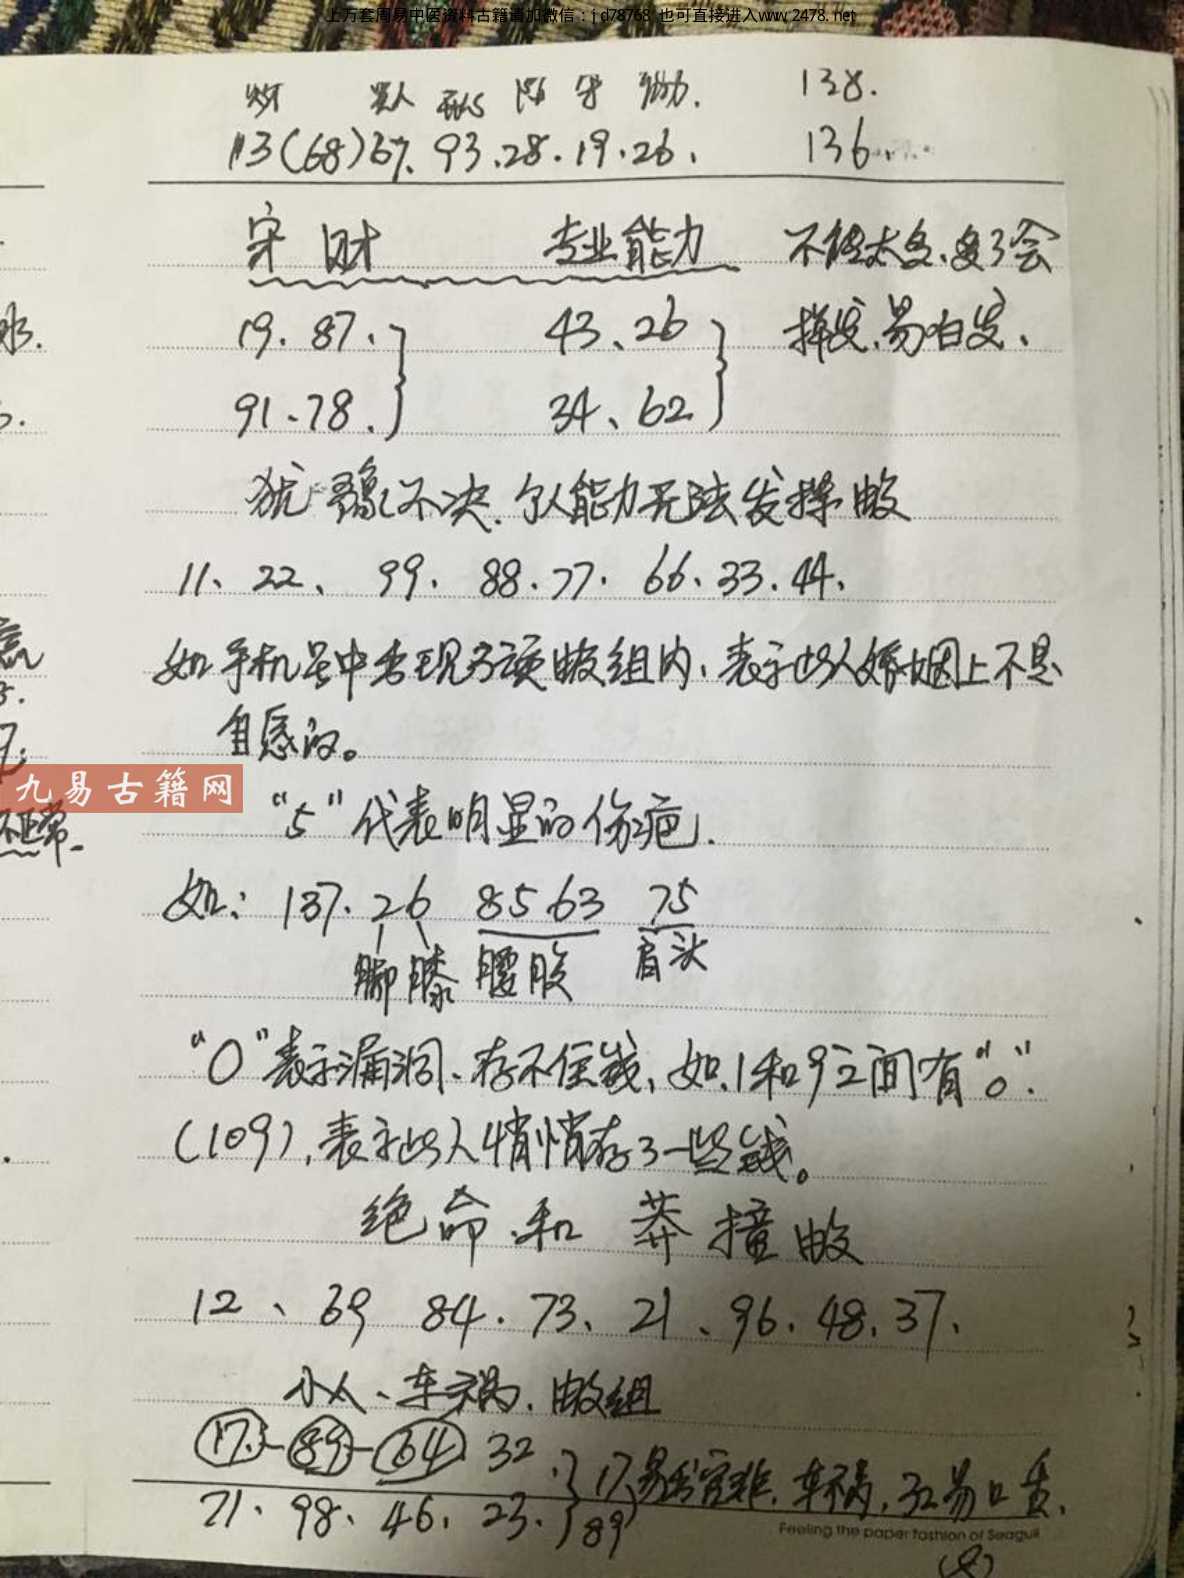 上万套周易中医资料古籍请加微信：jd78768 也可直接进入www.2478.net
财 贵人 陷 守 能力. 138.
13(68)67. 93.28.19.26. 136.
守 财 专业能力 不能太多、多了会
19. 87. 43、26 挥发.易白发、
91、78. 34、62
犹豫不决. 个人能力无法发挥
11、22、 99. 88.77. 66.33.44.
如手机号中出现了该 组内. 表示此人婚姻上不是
自愿的。
九易古籍网
"5"代表明显的伤疤.
如: 137. 26 8563 75
脚 膝 腰 股 肩头
"0"表示漏洞、存不住钱、如.1和9之间有"0".
(109), 表示此人悄悄存了一些钱。
绝命 和 莽撞
12、69 84.73、21、96.48.37.
小人、车祸. 组
17.-89-64 32 17.易 官非. 车祸, 32易口舌.
71、98、46. 23. 89
Feeling the paper fashion of Seagull
不正常.